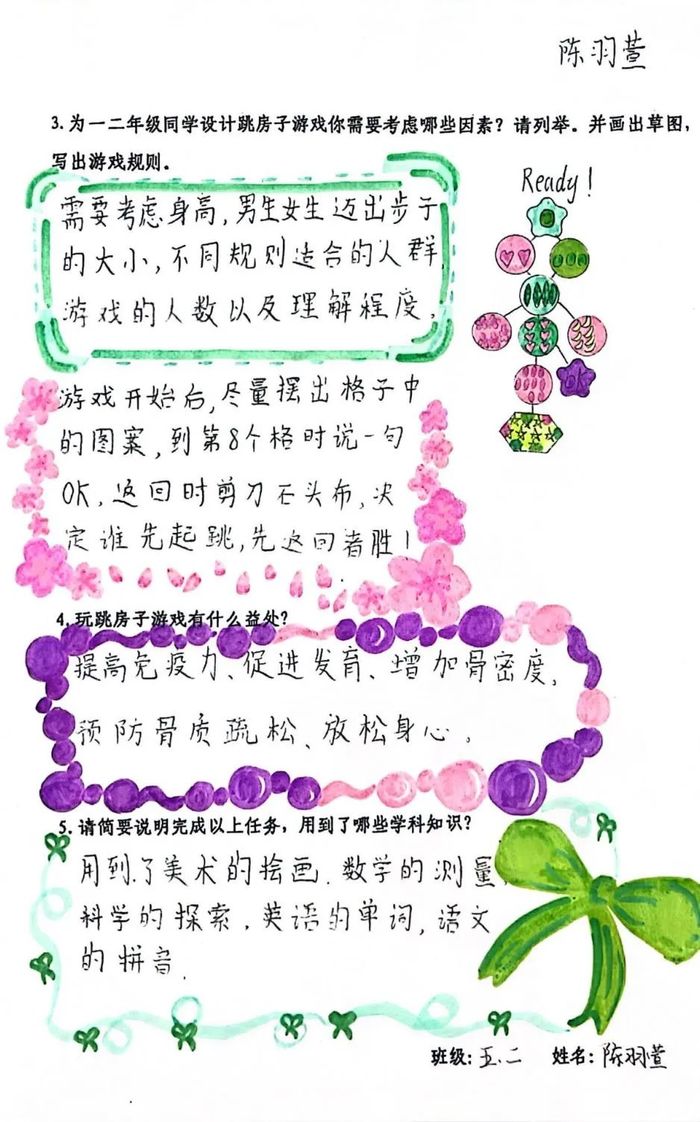 陈羽萱
3.为一二年级同学设计跳房子游戏你需要考虑哪些因素？请列举。并画出草图，
写出游戏规则。
Ready!
需要考虑身高，男生女生迈出步子
的大小，不同规则适合的人群
游戏的人数以及理解程度。
OK
游戏开始后，尽量摆出格子中
的图案，到第8个格时说一句
OK，返回时剪刀石头布，决
定谁先起跳，先返回者胜！
4.玩跳房子游戏有什么益处？
提高免疫力、促进发育、增加骨密度，
预防骨质疏松、放松身心。
5.请简要说明完成以上任务，用到了哪些学科知识？
用到了美术的绘画．数学的测量
科学的探索．英语的单词，语文
的拼音．
班级：五．二 姓名：陈羽萱